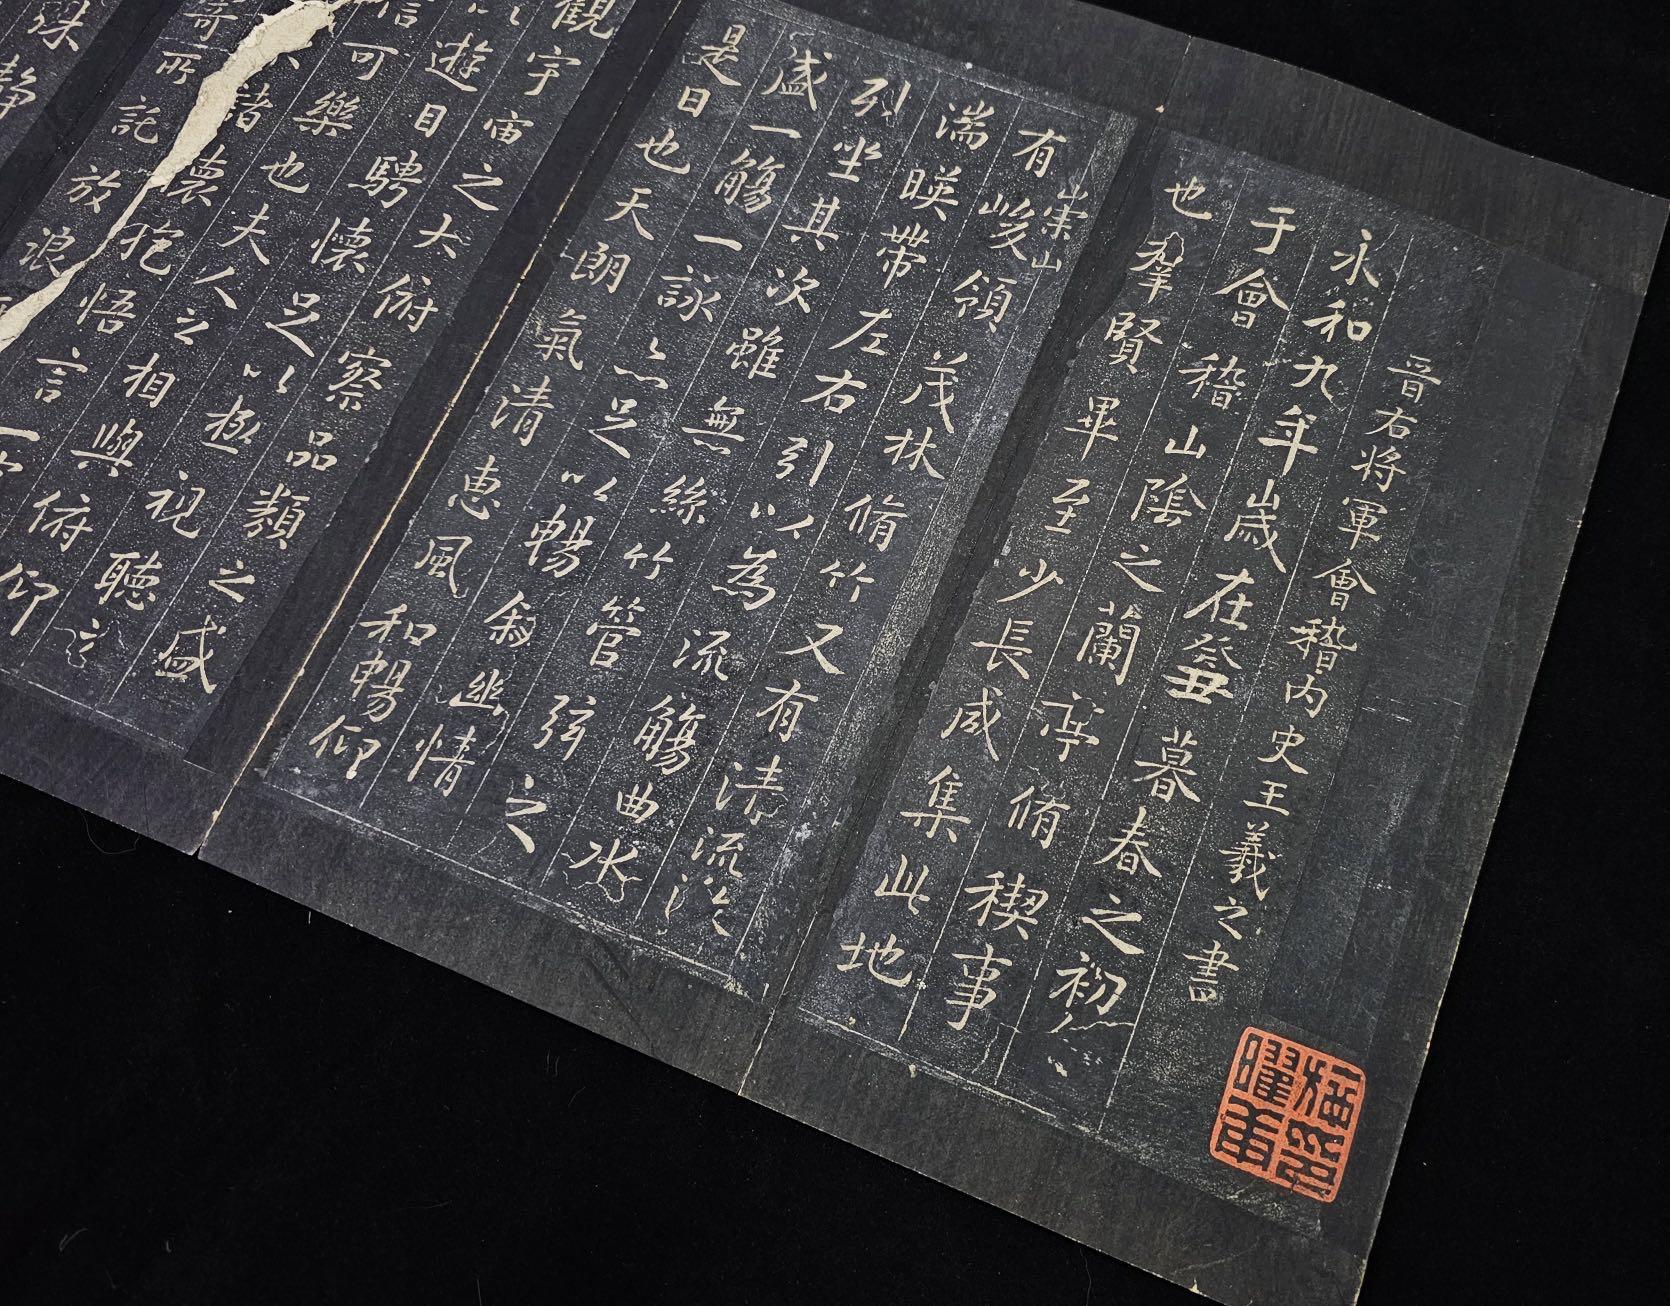 晋右将軍會稽内史王羲之書
永和九年歲在癸丑暮春之初
于會稽山陰之蘭亭脩稧事
也羣賢畢至少長咸集此地
有崇山峻領茂林脩竹又有清流激
湍暎帶左右引以為流觴曲水
列坐其次雖無絲竹管弦之
盛一觴一詠亦足以暢叙幽情
是日也天朗氣清恵風和暢仰
觀宇宙之大俯察品類之盛
以遊目騁懷足以極視聽之
信可樂也夫人之相與俯仰
諸懷抱悟言一
寄所託放浪
殊静